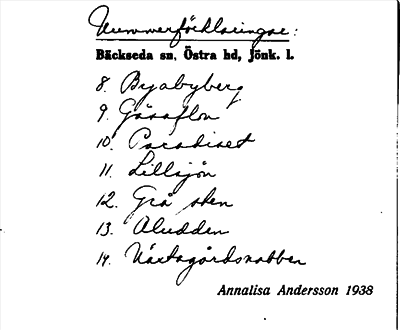 Nummerförklaringar:
Bäckseda sn, Östra hd, Jönk. l.
8. Byabyberg
9. Gåsaflon
10. Paradiset
11. Lillsjön
12. Grå sten
13. Aludden
14. Västagårdsnabben
Annalisa Andersson 1938